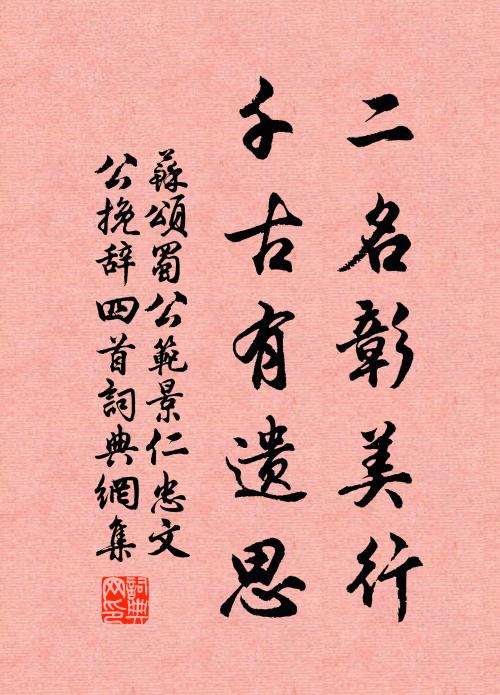 二名彰美行
千古有遗思
蘇頌蜀公範景仁忠文
公挽辞四首詞典網集
詞典
网印